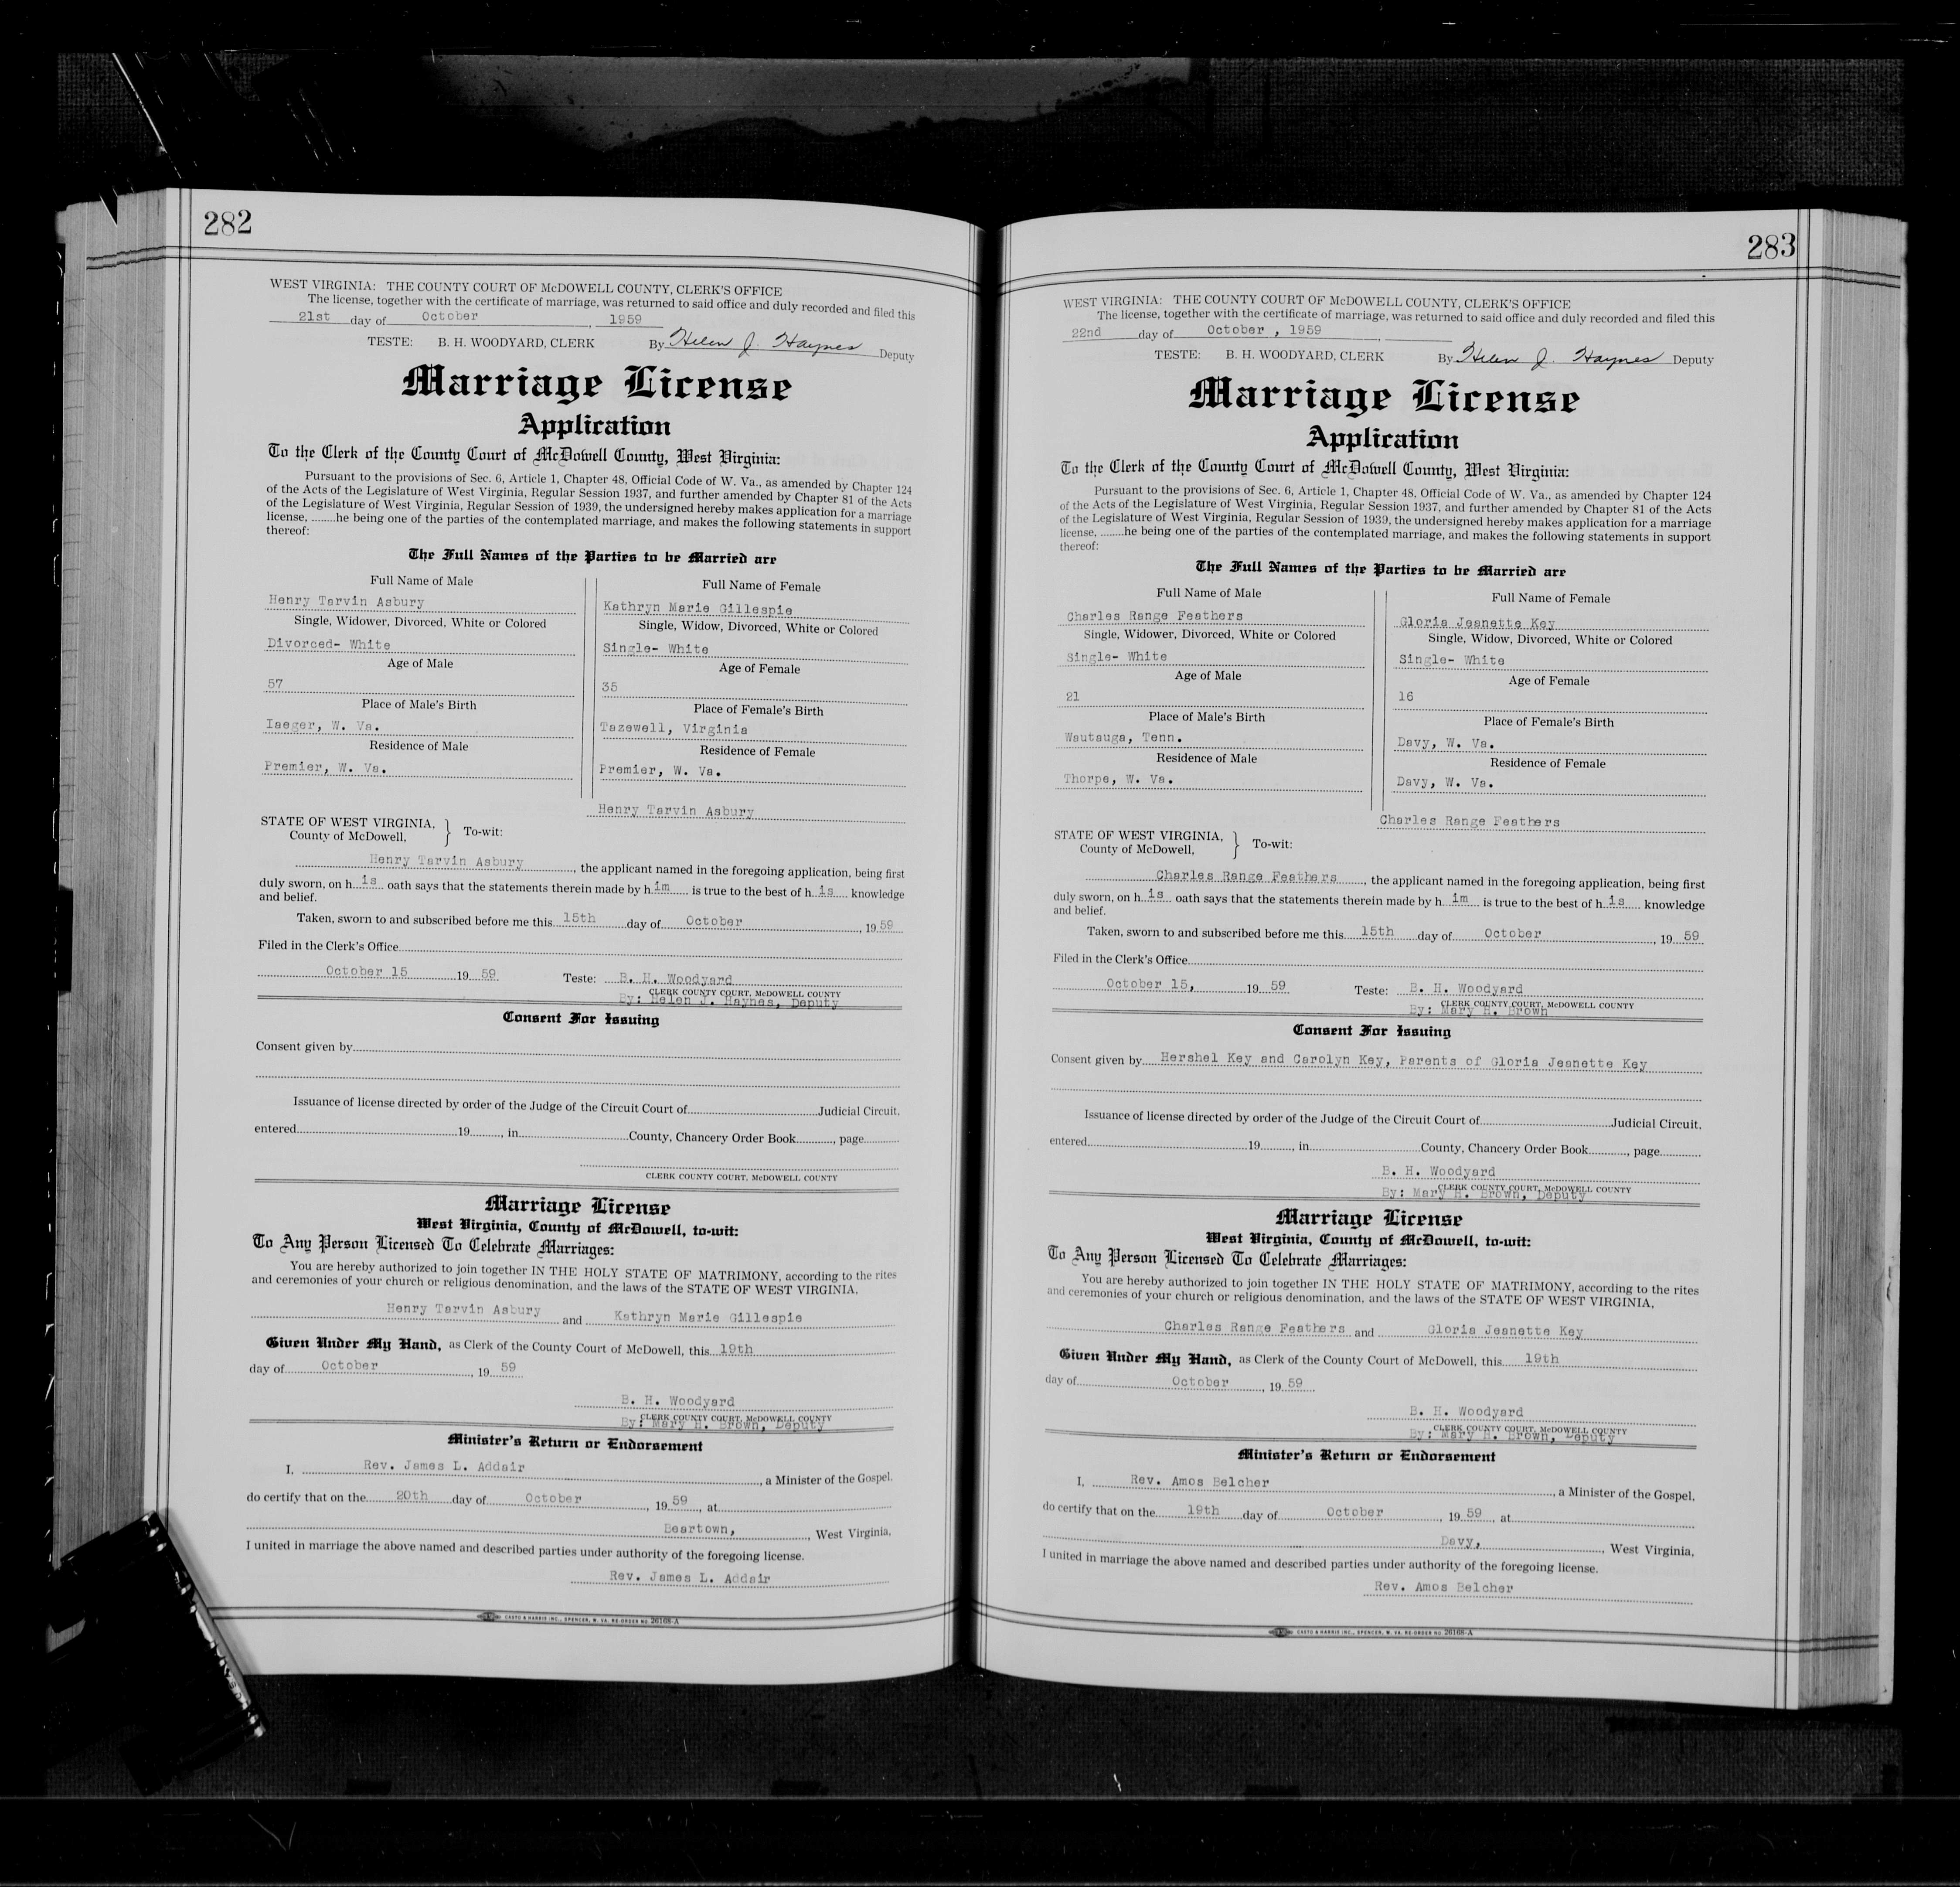 282
WEST VIRGINIA: THE COUNTY COURT OF McDOWELL COUNTY, CLERK'S OFFICE
The license, together with the certificate of marriage, was returned to said office and duly recorded and filed this
21st day of October, 1959
TESTE: B. H. WOODYARD, CLERK By Helen J. Haynes Deputy
Marriage License
Application
To the Clerk of the County Court of McDowell County, West Virginia:
Pursuant to the provisions of Sec. 6, Article 1, Chapter 48, Official Code of W. Va., as amended by Chapter 124
of the Acts of the Legislature of West Virginia, Regular Session 1937, and further amended by Chapter 81 of the Acts
of the Legislature of West Virginia, Regular Session of 1939, the undersigned hereby makes application for a marriage
license, ........he being one of the parties of the contemplated marriage, and makes the following statements in support
thereof:
The Full Names of the Parties to be Married are
Full Name of Male
Henry Tarvin Asbury
Single, Widower, Divorced, White or Colored
Divorced- White
Age of Male
57
Place of Male's Birth
Iaeger, W. Va.
Residence of Male
Premier, W. Va.
Full Name of Female
Kathryn Marie Gillespie
Single, Widow, Divorced, White or Colored
Single- White
Age of Female
35
Place of Female's Birth
Tazewell, Virginia
Residence of Female
Premier, W. Va.
Henry Tarvin Asbury
STATE OF WEST VIRGINIA,
County of McDowell, } To-wit:
Henry Tarvin Asbury, the applicant named in the foregoing application, being first
duly sworn, on h is oath says that the statements therein made by h im is true to the best of h is knowledge
and belief.
Taken, sworn to and subscribed before me this 15th day of October, 19 59
Filed in the Clerk's Office
October 15 19 59 Teste: B. H. Woodyard
CLERK COUNTY COURT, McDOWELL COUNTY
By: Helen J. Haynes, Deputy
Consent For Issuing
Consent given by
Issuance of license directed by order of the Judge of the Circuit Court of Judicial Circuit,
entered 19, in County, Chancery Order Book, page
CLERK COUNTY COURT, McDOWELL COUNTY
Marriage License
West Virginia, County of McDowell, to-wit:
To Any Person Licensed To Celebrate Marriages:
You are hereby authorized to join together IN THE HOLY STATE OF MATRIMONY, according to the rites
and ceremonies of your church or religious denomination, and the laws of the STATE OF WEST VIRGINIA,
Henry Tarvin Asbury and Kathryn Marie Gillespie
Given Under My Hand, as Clerk of the County Court of McDowell, this 19th
day of October, 19 59
B. H. Woodyard
CLERK COUNTY COURT, McDOWELL COUNTY
By: Mary H. Brown, Deputy
Minister's Return or Endorsement
I, Rev. James L. Addair, a Minister of the Gospel,
do certify that on the 20th day of October, 19 59, at
Beartown, West Virginia,
I united in marriage the above named and described parties under authority of the foregoing license.
Rev. James L. Addair
CASTO & HARRIS INC., SPENCER, W. VA. RE-ORDER NO. 26168-A
283
WEST VIRGINIA: THE COUNTY COURT OF McDOWELL COUNTY, CLERK'S OFFICE
The license, together with the certificate of marriage, was returned to said office and duly recorded and filed this
22nd day of October , 1959
TESTE: B. H. WOODYARD, CLERK By Helen J. Haynes Deputy
Marriage License
Application
To the Clerk of the County Court of McDowell County, West Virginia:
Pursuant to the provisions of Sec. 6, Article 1, Chapter 48, Official Code of W. Va., as amended by Chapter 124
of the Acts of the Legislature of West Virginia, Regular Session 1937, and further amended by Chapter 81 of the Acts
of the Legislature of West Virginia, Regular Session of 1939, the undersigned hereby makes application for a marriage
license, ........he being one of the parties of the contemplated marriage, and makes the following statements in support
thereof:
The Full Names of the Parties to be Married are
Full Name of Male
Charles Range Feathers
Single, Widower, Divorced, White or Colored
Single- White
Age of Male
21
Place of Male's Birth
Wautauga, Tenn.
Residence of Male
Thorpe, W. Va.
Full Name of Female
Gloria Jeanette Key
Single, Widow, Divorced, White or Colored
Single- White
Age of Female
16
Place of Female's Birth
Davy, W. Va.
Residence of Female
Davy, W. Va.
Charles Range Feathers
STATE OF WEST VIRGINIA,
County of McDowell, } To-wit:
Charles Range Feathers, the applicant named in the foregoing application, being first
duly sworn, on h is oath says that the statements therein made by h im is true to the best of h is knowledge
and belief.
Taken, sworn to and subscribed before me this 15th day of October, 19 59
Filed in the Clerk's Office
October 15, 19 59 Teste: B. H. Woodyard
CLERK COUNTY COURT, McDOWELL COUNTY
By: Mary H. Brown
Consent For Issuing
Consent given by Hershel Key and Carolyn Key, Parents of Gloria Jeanette Key
Issuance of license directed by order of the Judge of the Circuit Court of Judicial Circuit,
entered 19, in County, Chancery Order Book, page
B. H. Woodyard
CLERK COUNTY COURT, McDOWELL COUNTY
By: Mary H. Brown, Deputy
Marriage License
West Virginia, County of McDowell, to-wit:
To Any Person Licensed To Celebrate Marriages:
You are hereby authorized to join together IN THE HOLY STATE OF MATRIMONY, according to the rites
and ceremonies of your church or religious denomination, and the laws of the STATE OF WEST VIRGINIA,
Charles Range Feathers and Gloria Jeanette Key
Given Under My Hand, as Clerk of the County Court of McDowell, this 19th
day of October, 19 59
B. H. Woodyard
CLERK COUNTY COURT, McDOWELL COUNTY
By: Mary H. Brown, Deputy
Minister's Return or Endorsement
I, Rev. Amos Belcher, a Minister of the Gospel,
do certify that on the 19th day of October, 19 59, at
Davy, West Virginia,
I united in marriage the above named and described parties under authority of the foregoing license.
Rev. Amos Belcher
CASTO & HARRIS INC., SPENCER, W. VA. RE-ORDER NO. 26168-A